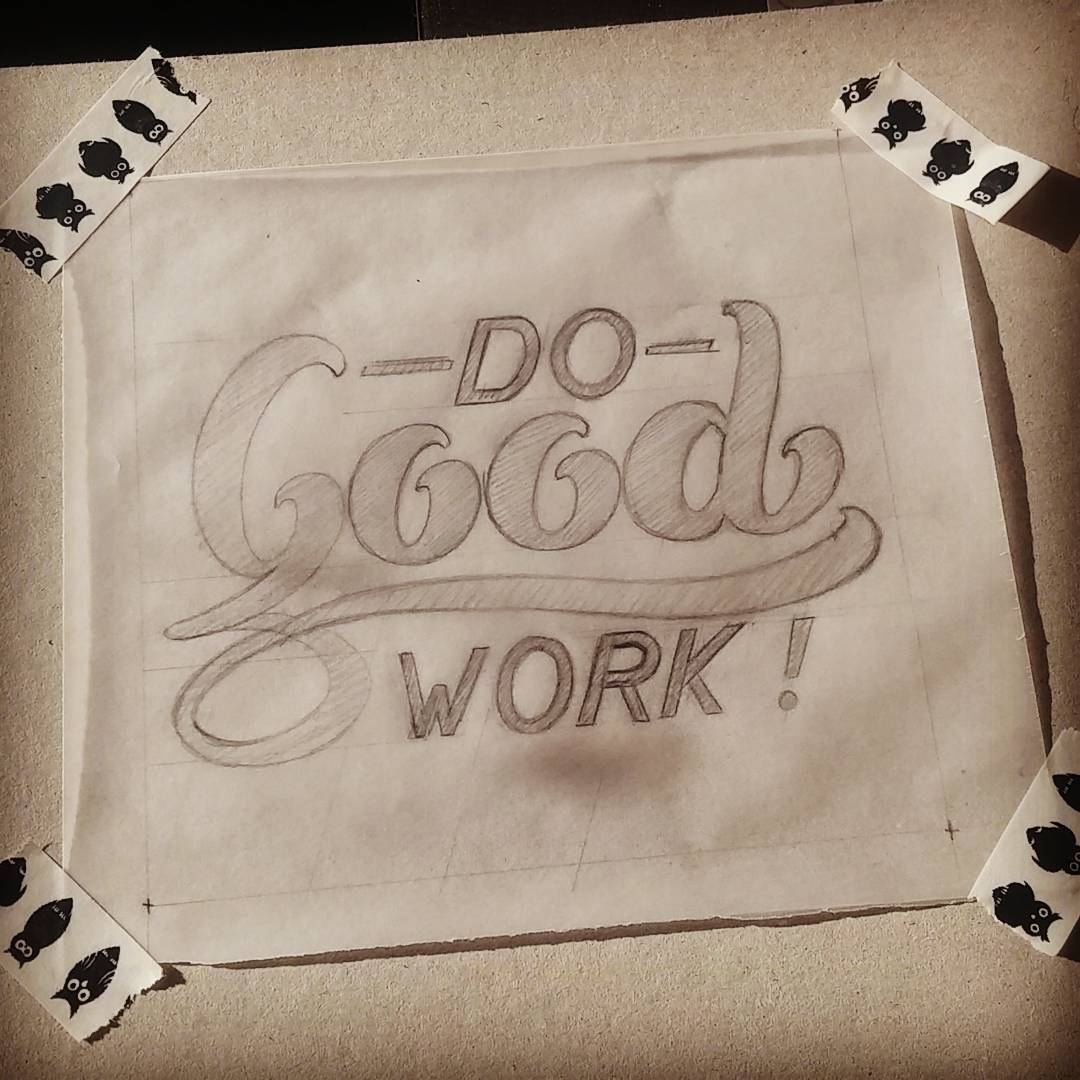 -DO-
Good
WORK!